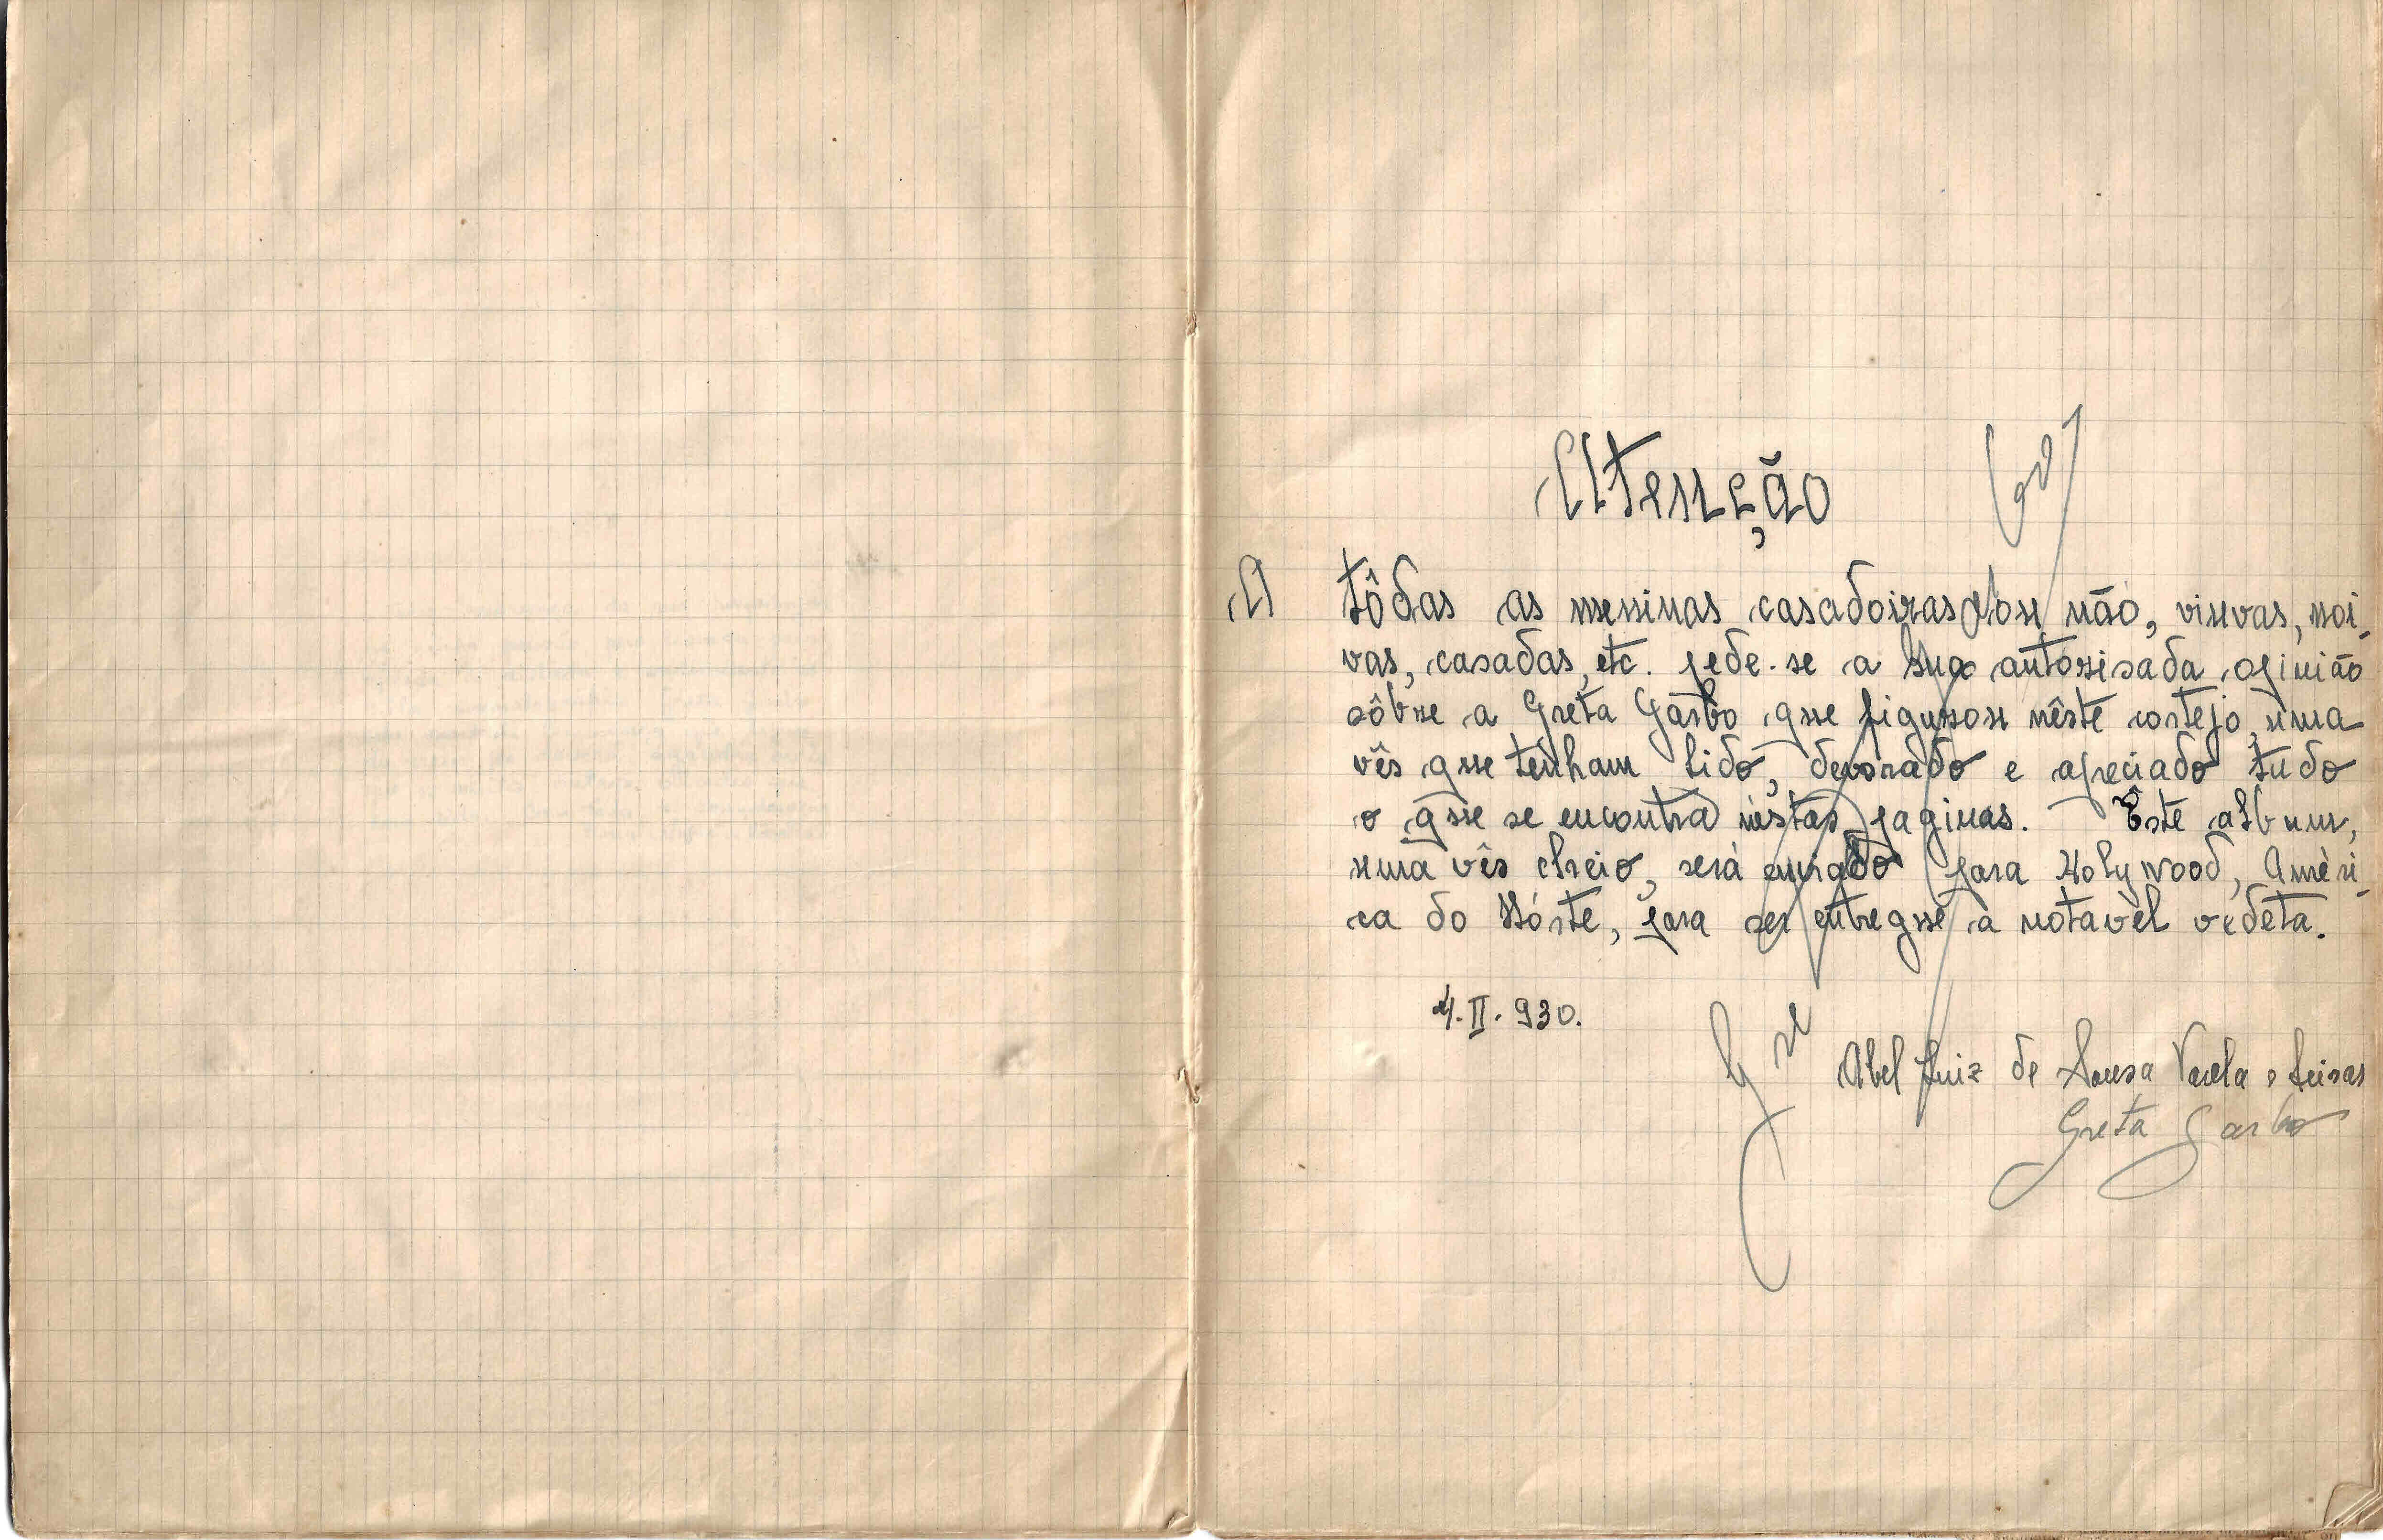 Atenção
A tôdas as meninas casadoiras ou não, viuvas, noi-
vas, casadas, etc. pede-se a sua autorisada opinião
sôbre a Greta Garbo que figurou nêste cortejo, uma
vês que tenham lido, devorado e apreciado tudo
o que se encontra néstas paginas. Êste album,
uma vês cheio, será enviado para Holywood, Améri-
ca do Nórte, para ser entregue á notavèl vedeta.
4. II. 930.
Abel Luiz de Sousa Varela e Seixas
Greta Garbo